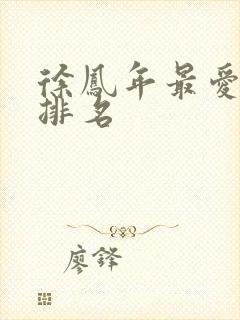 徐鳳年最愛
排名
廖鋒